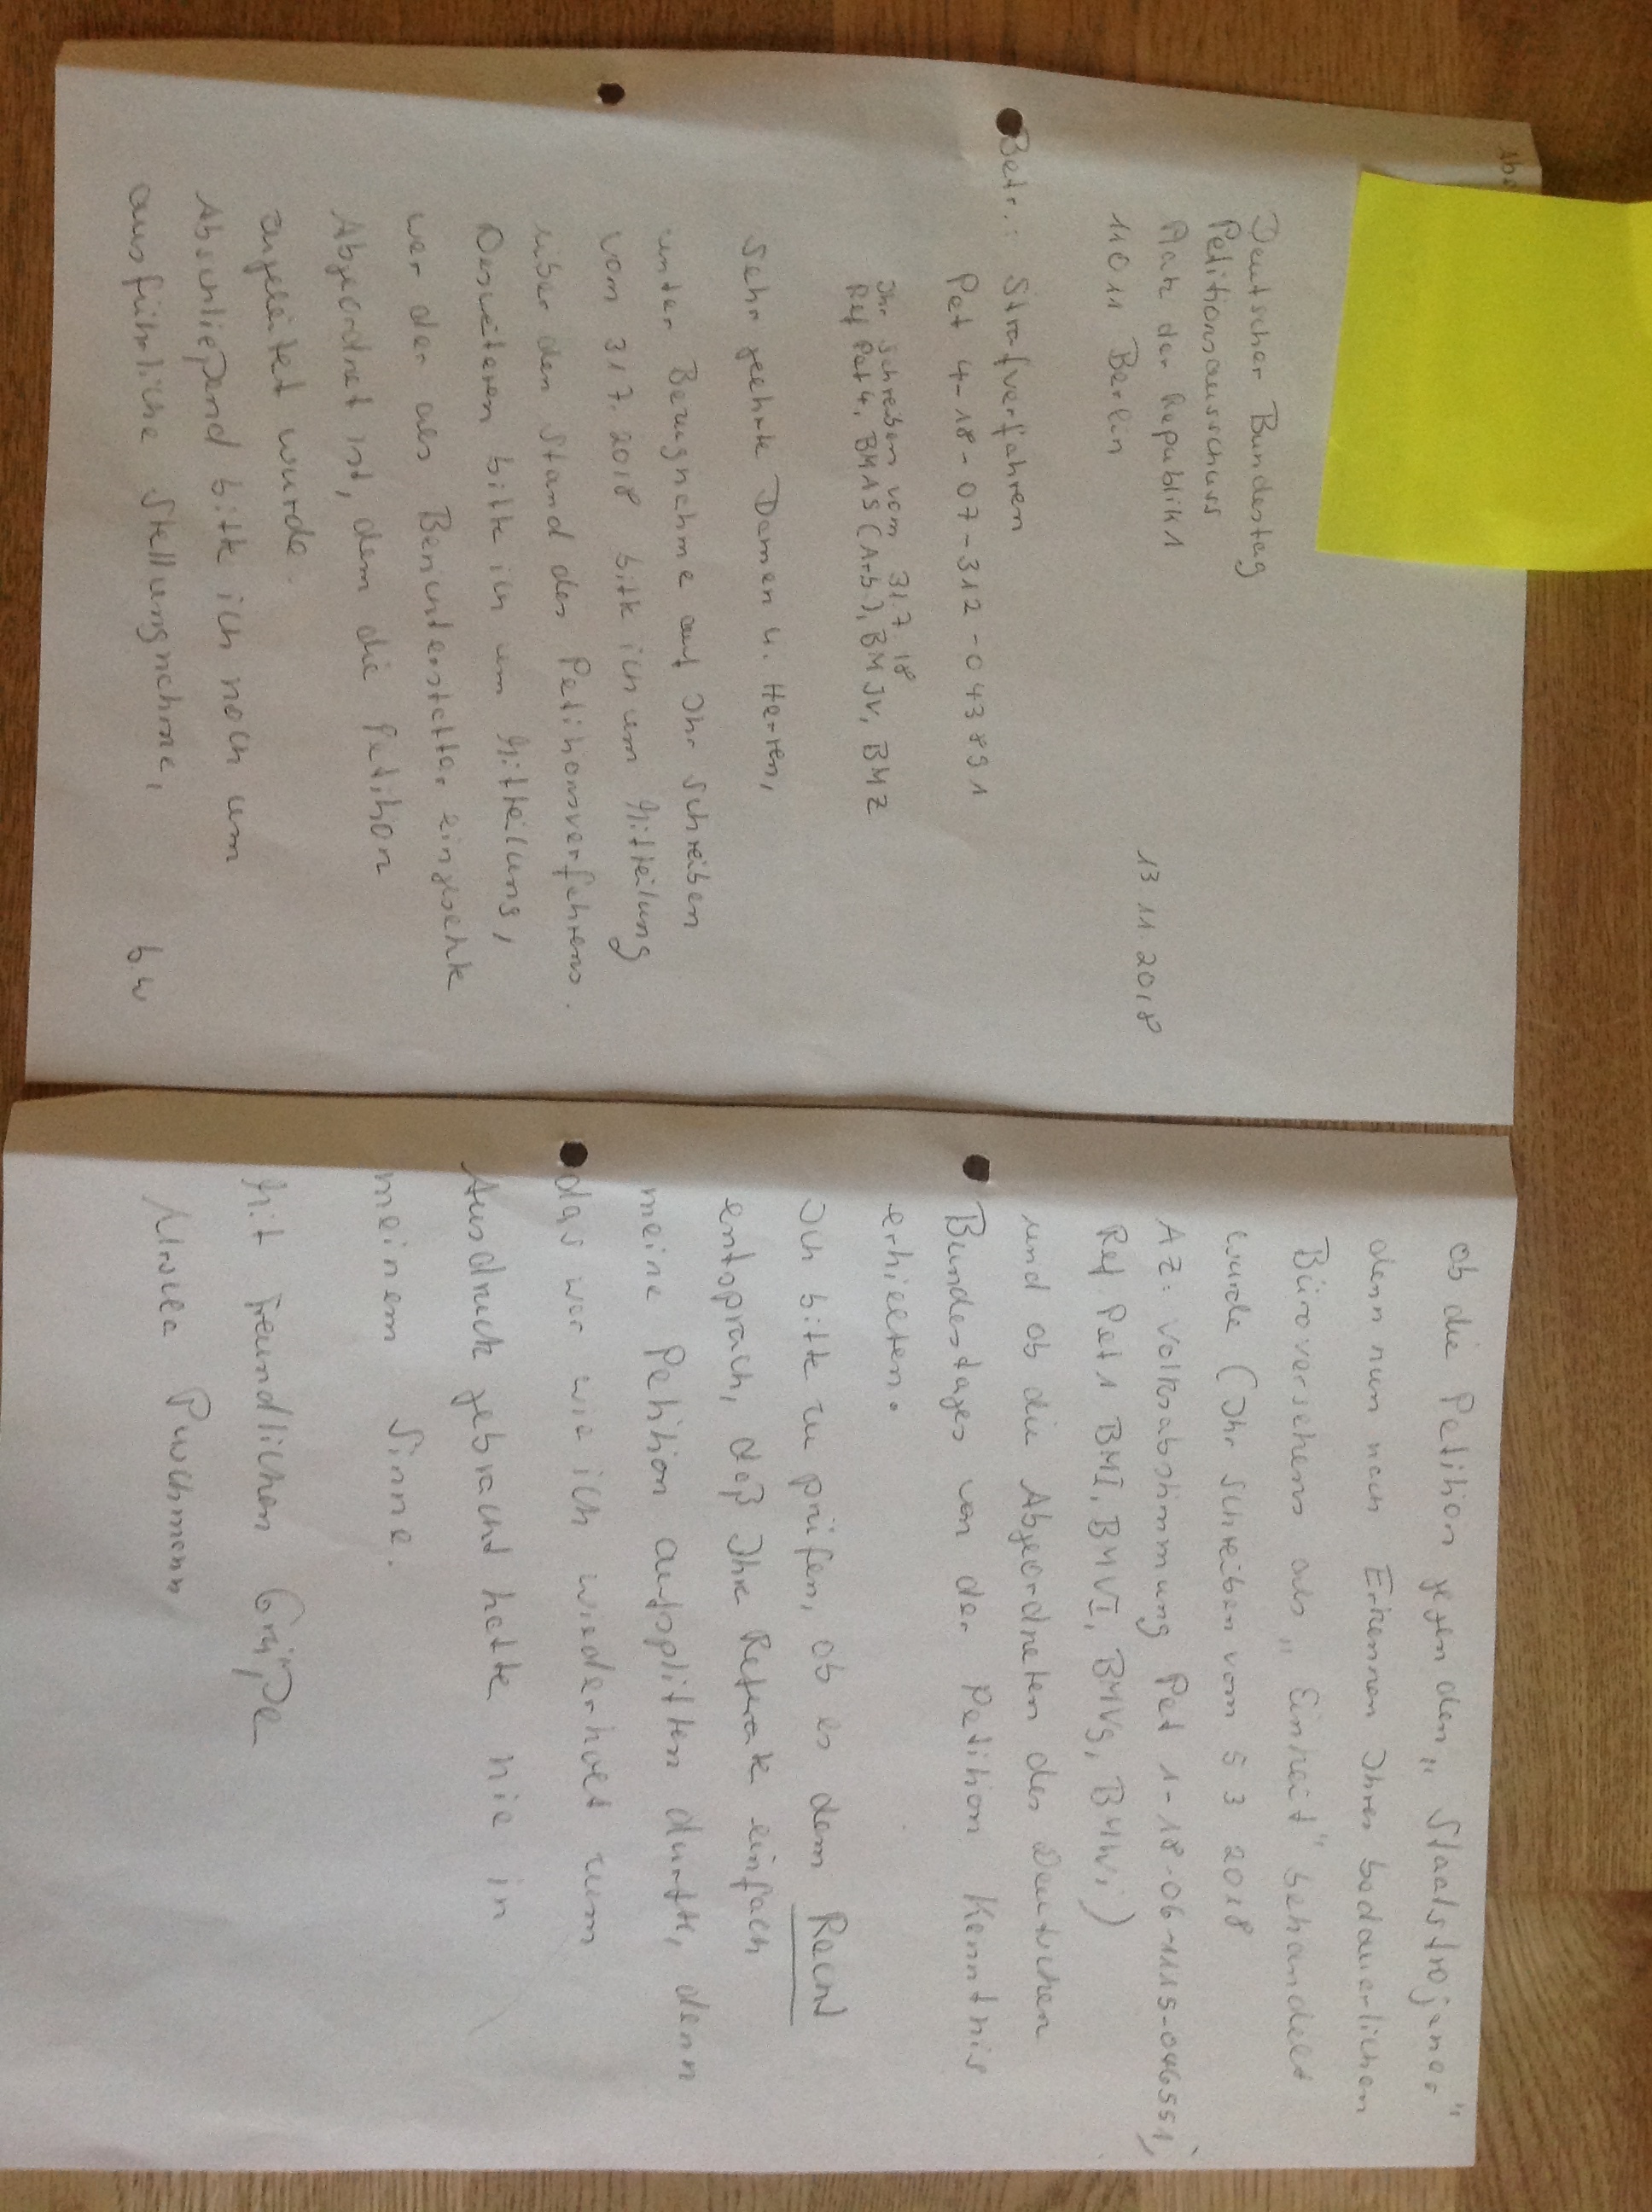 Abs
Deutscher Bundestag
Petitionsausschuss
Platz der Republik 1
11011 Berlin
13 11 2018
Betr.: Strafverfahren
Pet 4-18-07-312-043891
Ihr Schreiben vom 31.7 18
Ref Pet 4, BMAS (Arb.), BMJV, BMZ
Sehr geehrte Damen u. Herren,
unter Bezugnahme auf Ihr Schreiben
vom 31.7.2018 bitte ich um Mitteilung
über den Stand des Petitionsverfahrens.
Desweiteren bitte ich um Mitteilung,
wer der als Berichterstatter eingesetzte
Abgeordnet ist, dem die Petition
zugeleitet wurde.
Abschließend bitte ich noch um
ausführliche Stellungnahme,
b.w
ob die Petition gegen den „Staatstrojaner"
denn nun nach Erkennen Ihres bedauerlichen
Büroversehens als „Einheit" behandelt
wurde (Ihr Schreiben vom 5 3 2018
AZ: Volksabstimmung Pet 1-18-06-1115-046551,
Ref Pet 1 BMI, BMVI, BMVg, BMWi)
und ob die Abgeordneten des Deutschen
Bundestages von der Petition Kenntnis
erhielten.
Ich bitte zu prüfen, ob es dem Recht
entsprach, daß Ihre Referate einfach
meine Petition aufsplitten durfte, denn
das war wie ich wiederholt zum
Ausdruck gebracht hatte nie in
meinem Sinne.
Mit freundlichen Grüßen
Puschmann